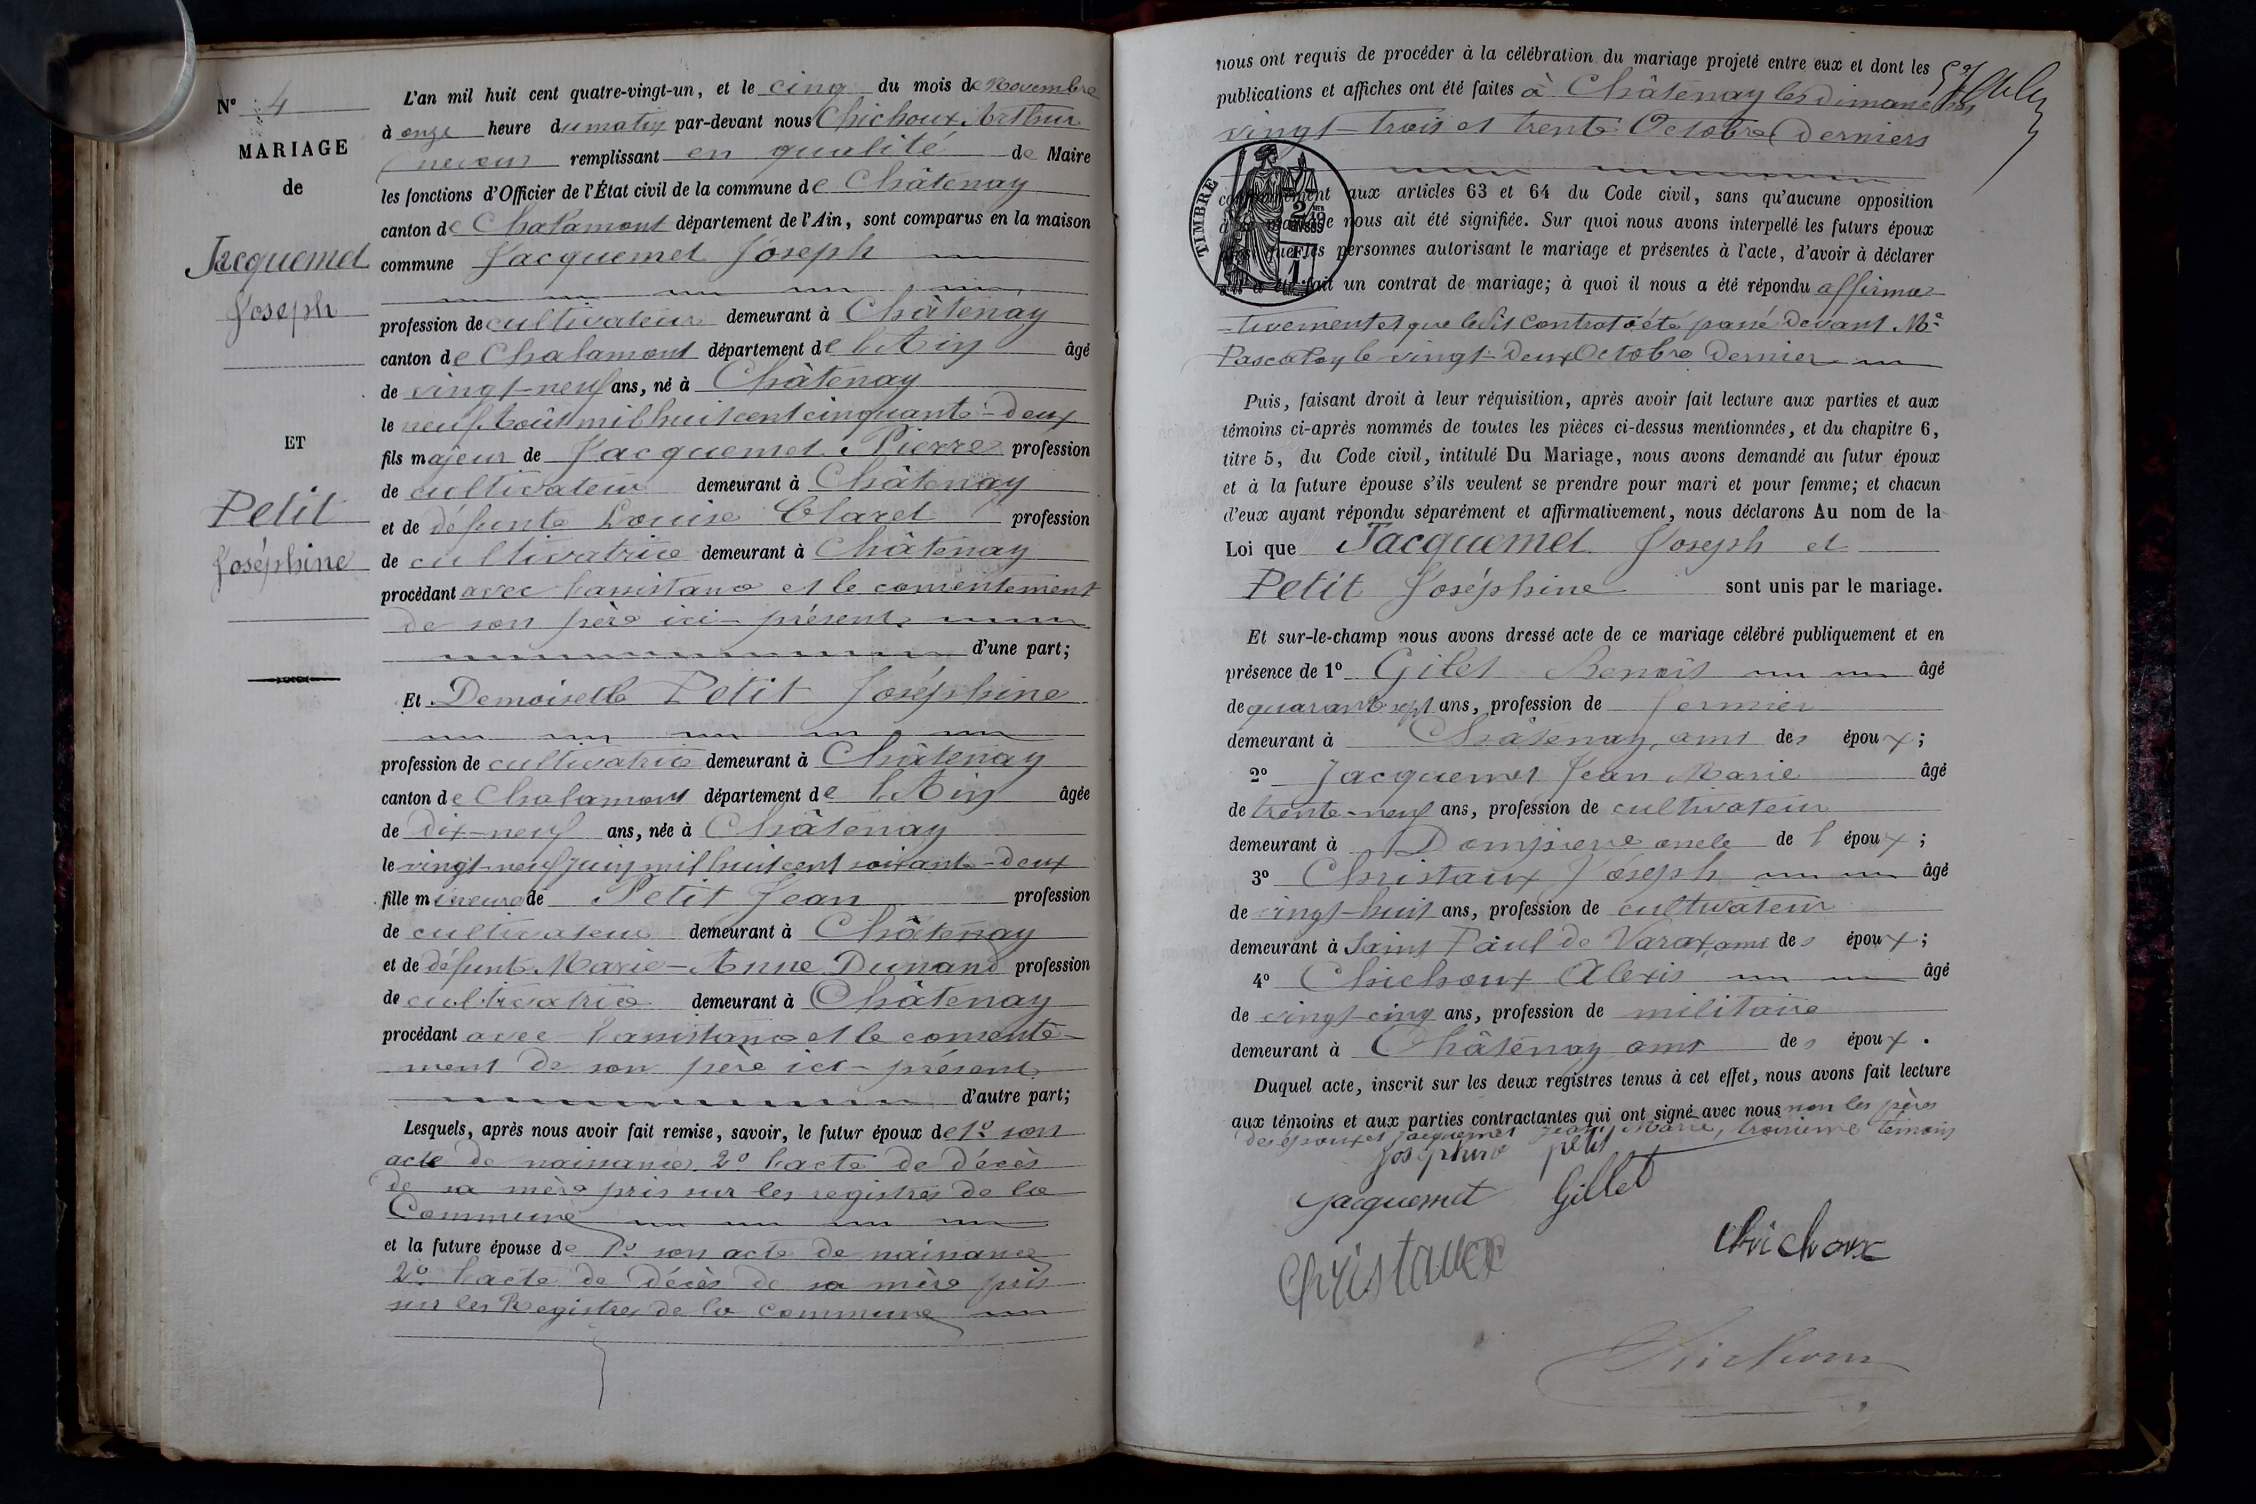 N° 4
MARIAGE
de
Jacquemet
Joseph
ET
Petit
Joséphine
L'an mil huit cent quatre-vingt-un, et le cinq du mois de Novembre
à onze heure du matin par-devant nous Chichoux Arthur
remplissant en qualité de Maire
les fonctions d'Officier de l'État civil de la commune de Châtenay
canton de Chalamont département de l'Ain, sont comparus en la maison
commune Jacquemet Joseph
profession de cultivateur demeurant à Châtenay
canton de Chalamont département de l'Ain âgé
de vingt-neuf ans, né à Châtenay
le neuf Août mil huit cent cinquante-deux
fils majeur de Jacquemet Pierre profession
de cultivateur demeurant à Châtenay
et de défunte Louise Claret profession
de cultivatrice demeurant à Châtenay
procédant avec l'assistance et le consentement
de son père ici présent
d'une part;
Et Demoiselle Petit Joséphine
profession de cultivatrice demeurant à Châtenay
canton de Chalamont département de l'Ain âgée
de dix-neuf ans, née à Châtenay
le vingt-neuf juin mil huit cent soixante-deux
fille mineure de Petit Jean profession
de cultivateur demeurant à Châtenay
et de défunte Marie-Anne Dunand profession
de cultivatrice demeurant à Châtenay
procédant avec l'assistance et le consente-
ment de son père ici présent
d'autre part;
Lesquels, après nous avoir fait remise, savoir, le futur époux de 1° son
acte de naissance 2° l'acte de décès
de sa mère pris sur les registres de la
Commune
et la future épouse de 1° son acte de naissance
2° l'acte de décès de sa mère pris
sur les Registres de la commune
nous ont requis de procéder à la célébration du mariage projeté entre eux et dont les
publications et affiches ont été faites à Châtenay les dimanches
vingt-trois et trente Octobre derniers
conformément aux articles 63 et 64 du Code civil, sans qu'aucune opposition
à ce mariage nous ait été signifiée. Sur quoi nous avons interpellé les futurs époux
ainsi que les personnes autorisant le mariage et présentes à l'acte, d'avoir à déclarer
s'il a été fait un contrat de mariage; à quoi il nous a été répondu affirma-
-tivement et que ledit Contrat a été passé devant Me
le vingt-deux Octobre dernier
TIMBRE
Puis, faisant droit à leur réquisition, après avoir fait lecture aux parties et aux
témoins ci-après nommés de toutes les pièces ci-dessus mentionnées, et du chapitre 6,
titre 5, du Code civil, intitulé Du Mariage, nous avons demandé au futur époux
et à la future épouse s'ils veulent se prendre pour mari et pour femme; et chacun
d'eux ayant répondu séparément et affirmativement, nous déclarons Au nom de la
Loi que Jacquemet Joseph et
Petit Joséphine sont unis par le mariage.
Et sur-le-champ nous avons dressé acte de ce mariage célébré publiquement et en
présence de 1° Gilet Benoît âgé
de quarante sept ans, profession de fermier
demeurant à Châtenay, ami des époux;
2° Jacquemet Jean Marie âgé
de trente-neuf ans, profession de cultivateur
demeurant à Dompierre oncle de l'époux;
3° Christaux Joseph âgé
de vingt-huit ans, profession de cultivateur
demeurant à Saint Paul de Varax, ami des époux;
4° Chichoux Alexis âgé
de vingt-cinq ans, profession de militaire
demeurant à Châtenay ami des époux.
Duquel acte, inscrit sur les deux registres tenus à cet effet, nous avons fait lecture
aux témoins et aux parties contractantes qui ont signé avec nous non les pères
des époux et Jacquemet Jean, Marie, troisième témoin
Joséphine petit
Jacquemet Gillet
Christaux
Chichoux
Chichoux